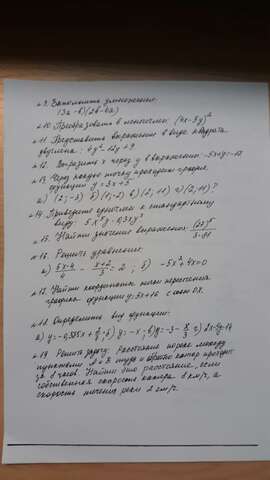 №9. Выполнить умножение:
(3а - в)(2в - 4а)
№10. Преобразовать в многочлен: (4х - 3у)²
№11. Представить выражение в виде квадрата
двучлена: 4у² - 12у + 9
№12. Выразить х через у в выражении: -5х+у=-17
№13. Через какую точку проходит график
функции у = 3х + 5
а) (2; -3) б) (1; -2) в) (2; 11) г) (2; 11)?
№14. Приведите одночлен к стандартному
виду:
№15. Найти значение выражения:
№16. Решить уравнения:
а) (5х-4)/4 - (х+2)/3 = 2; б) -5х² + 4х = 0
№17. Найти координаты точки пересечения
графика функции у=3х+16 с осью ОХ.
№18. Определить вид функции:
№19. Решить задачу: Расстояние по реке между
пунктами А и В туда и обратно катер проходит
за 8 часов. Найти это расстояние, если
собственная скорость катера 8 км/ч, а
скорость течения реки 2 км/ч.